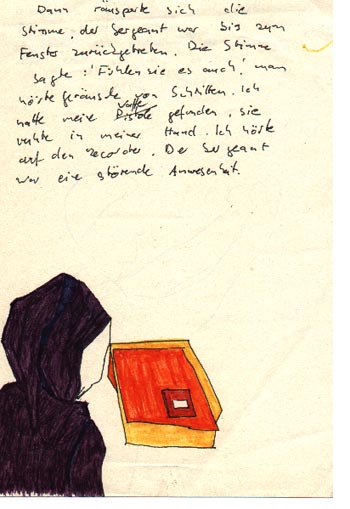 Dann räusperte sich die
Stimme, der Sergeant war bis zum
Fenster zurückgetreten. Die Stimme
sagte: 'Fühlen sie es auch', man
hörte Geräusche von Schritten. Ich
hatte meine Waffe gefunden, sie
ruhte in meiner Hand. Ich hörte
auf den Recorder. Der Sergeant
war eine störende Anwesenheit.